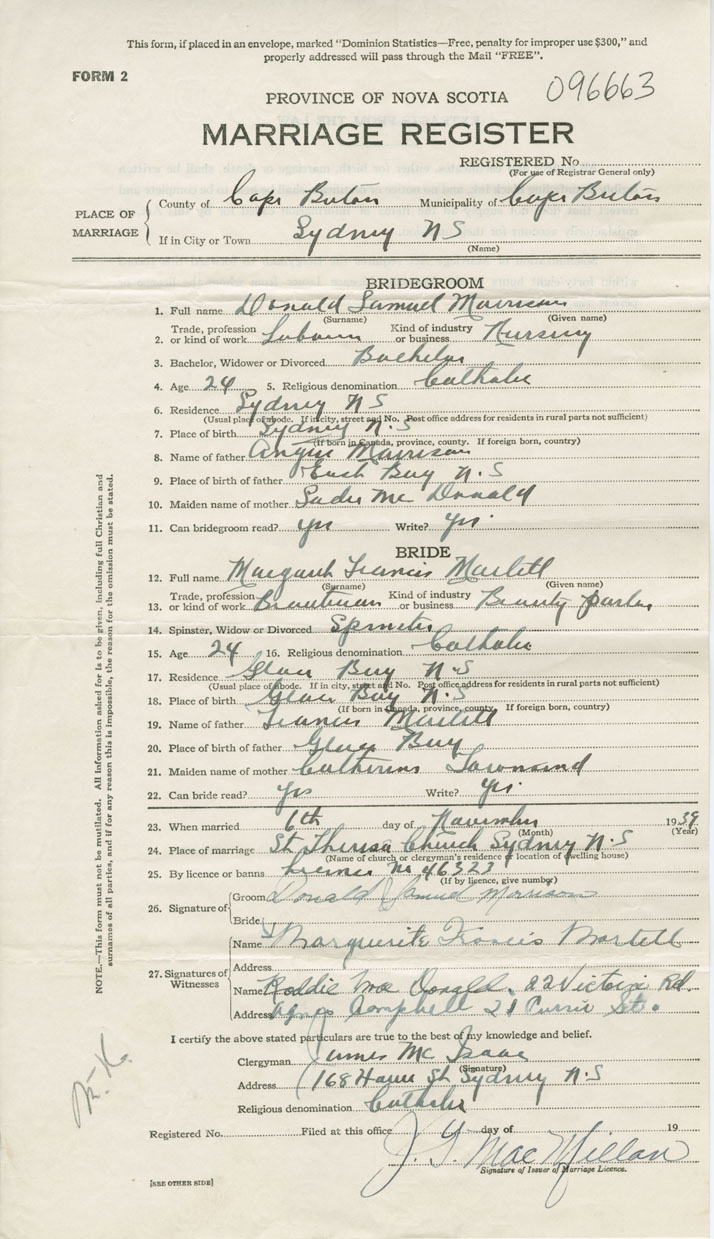 This form, if placed in an envelope, marked "Dominion Statistics—Free, penalty for improper use $300," and
properly addressed will pass through the Mail "FREE".
FORM 2
096663
PROVINCE OF NOVA SCOTIA
MARRIAGE REGISTER
REGISTERED No.
(For use of Registrar General only)
PLACE OF MARRIAGE
County of Cape Breton Municipality of Cape Breton
If in City or Town Sydney NS
(Name)
BRIDEGROOM
1. Full name Donald Samuel Morrison
(Surname) (Given name)
2. Trade, profession or kind of work Labourer Kind of industry or business Nursery
3. Bachelor, Widower or Divorced Bachelor
4. Age 24 5. Religious denomination Catholic
6. Residence Sydney NS
(Usual place of abode. If in city, street and No. Post office address for residents in rural parts not sufficient)
7. Place of birth Sydney N.S
(If born in Canada, province, county. If foreign born, country)
8. Name of father Angus Morrison
9. Place of birth of father Bay N.S
10. Maiden name of mother Sadie Mc Donald
11. Can bridegroom read? yes Write? yes.
BRIDE
12. Full name Francis Martell
(Surname) (Given name)
13. Trade, profession or kind of work Kind of industry or business Beauty parlor
14. Spinster, Widow or Divorced Spinster
15. Age 24 16. Religious denomination Catholic
17. Residence Glace Bay N.S
(Usual place of abode. If in city, street and No. Post office address for residents in rural parts not sufficient)
18. Place of birth Glace Bay N.S
(If born in Canada, province, county. If foreign born, country)
19. Name of father Francis Martell
20. Place of birth of father Glace Bay
21. Maiden name of mother Catherine Townsend
22. Can bride read? yes Write? yes.
23. When married 6th day of November 1939
(Month) (Year)
24. Place of marriage St Theresa Church Sydney N.S
(Name of church or clergyman's residence or location of dwelling house)
25. By licence or banns License No 46323
(If by licence, give number)
26. Signature of Groom Donald Samuel Morrison
Bride Marguerite Francis Martell
27. Signatures of Witnesses
Name
Address
Name Roddie Mac Donald. 22 Victoria Rd.
Address Agnes Campbell 21 Currie St.
I certify the above stated particulars are true to the best of my knowledge and belief.
Clergyman James Mc Isaac
(Signature)
Address 168 St Sydney N.S
Religious denomination Catholic
Registered No. Filed at this office day of 19
J. Y. MacMillan
Signature of Issuer of Marriage Licence.
[SEE OTHER SIDE]
NOTE.—This form must not be mutilated. All information asked for is to be given, including full Christian and
surnames of all parties, and if for any reason this is impossible, the reason for the omission must be stated.